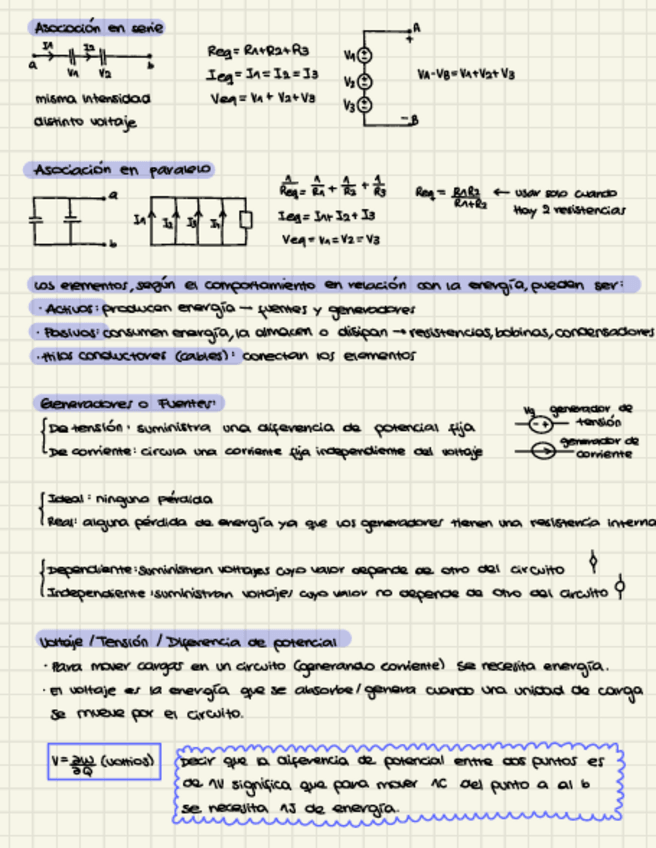 Asociación en serie
I1 I2
a V1 V2 b
misma intensidad
distinto voltaje
Req = R1+R2+R3
Ieq = I1 = I2 = I3
Veq = V1 + V2 + V3
A
+
V1
V2
V3
-B
VA-VB = V1+V2+V3
Asociación en paralelo
a
b
I1 I2 I3 I4
1/Req = 1/R1 + 1/R2 + 1/R3
Ieq = I1 + I2 + I3
Veq = V1 = V2 = V3
Req = R1R2/R1+R2 ← usar solo cuando
hay 2 resistencias
Los elementos, según el comportamiento en relación con la energía, pueden ser:
· Activos: producen energía → fuentes y generadores
· Pasivos: consumen energía, la almacen o disipan → resistencias, bobinas, condensadores
· Hilos conductores (cables): conectan los elementos
Generadores o Fuentes:
De tensión: suministra una diferencia de potencial fija
De corriente: circula una corriente fija independiente del voltaje
Vg generador de
- + tensión
generador de
corriente
Ideal: ninguna pérdida
Real: alguna pérdida de energía ya que los generadores tienen una resistencia interna
Dependiente: suministran voltajes cuyo valor depende de otro del circuito
Independiente: suministran voltajes cuyo valor no depende de otro del circuito
Voltaje / Tensión / Diferencia de potencial
· Para mover cargas en un circuito (generando corriente) se necesita energía.
· El voltaje es la energía que se absorbe/genera cuando una unidad de carga
se mueve por el circuito.
V = ∂W/∂Q (voltios)
Decir que la diferencia de potencial entre dos puntos es
de 1V significa que para mover 1C del punto a al b
se necesita 1J de energía.